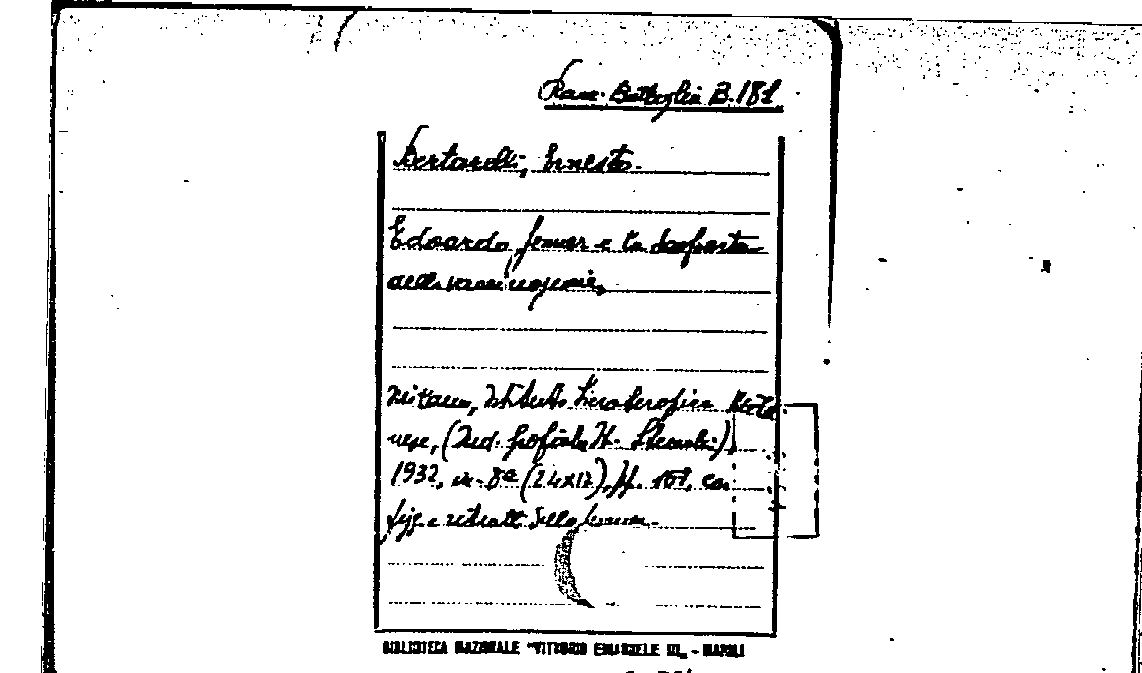 Battaglia B. 181
Bertarelli, Ernesto.
Edoardo Jenner e la scoperta
della vaccinazione,
Milano, Istituto Sieroterapico Mila
nese, (Ind. Grafiche N.
1932, in-8° (24x17), pp. 107, con
figg. e ritratti Jenner.
BIBLIOTECA NAZIONALE "VITTORIO EMANUELE III„ - NAPOLI